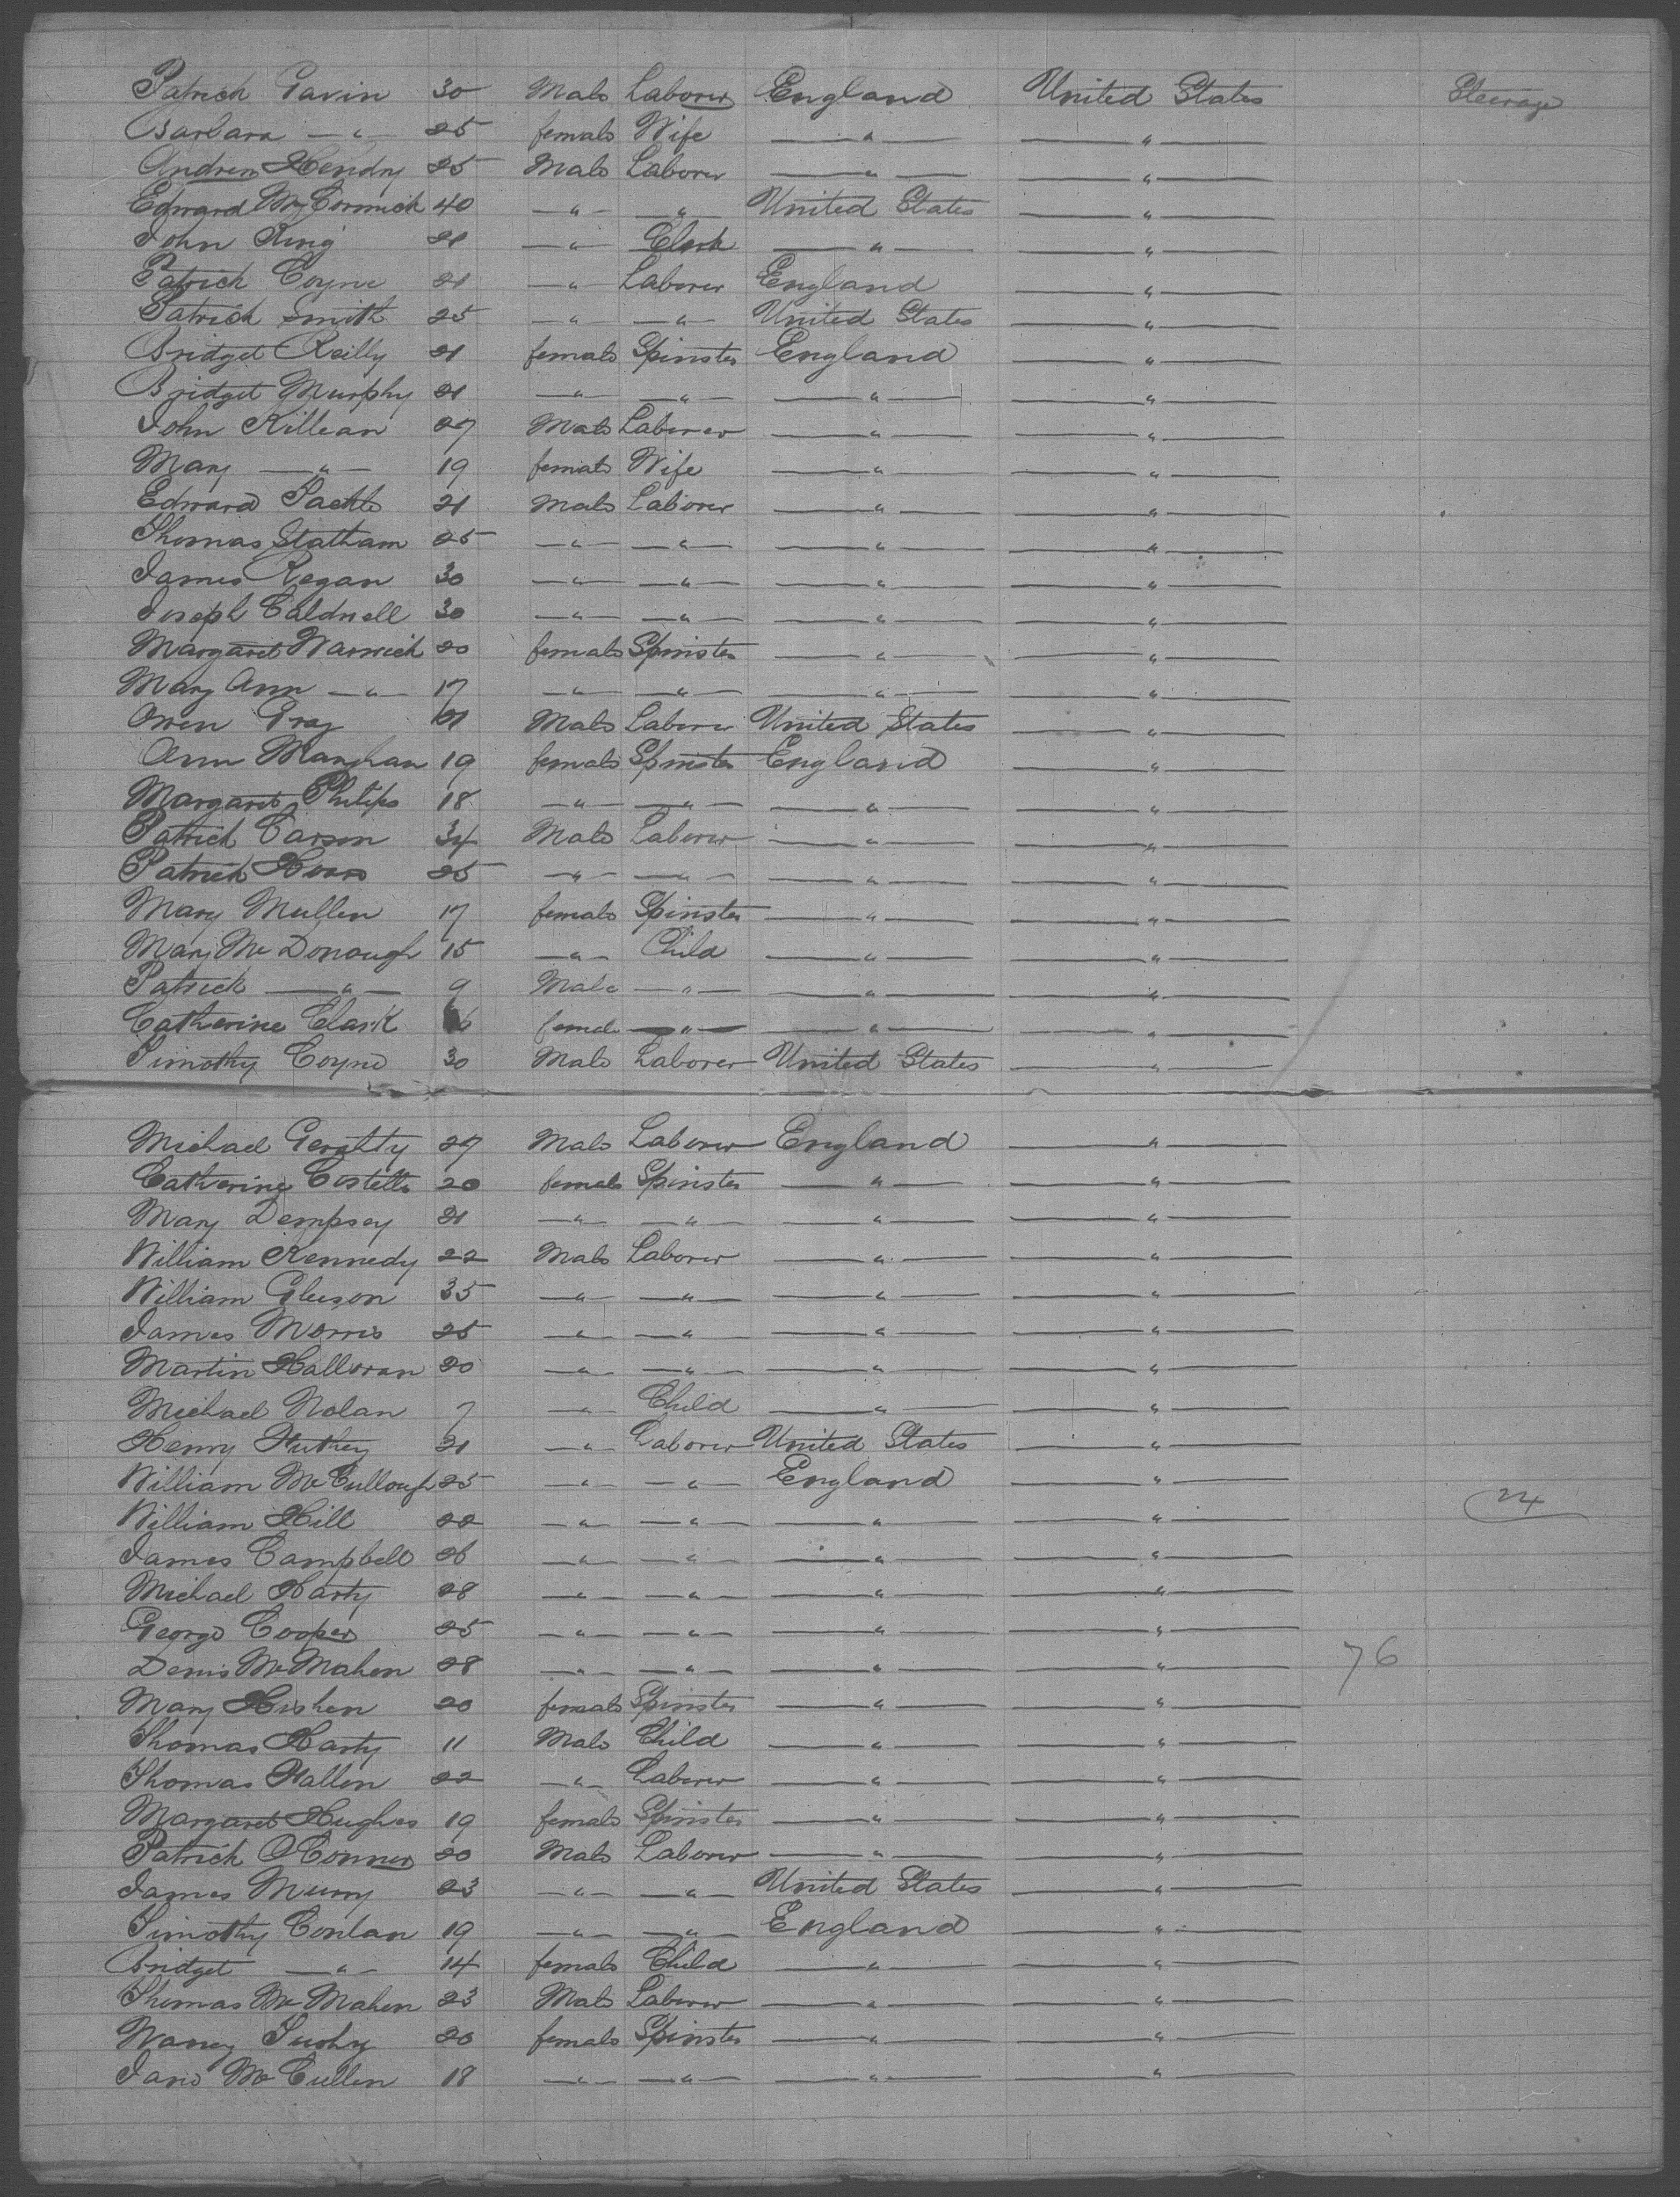 Patrick Gavin 30 Male Laborer England United States Steerage
Barbara — " — 25 female Wife — " — — " —
Andrew Hendry 25 Male Laborer — " — — " —
Edward McCormick 40 — " — — " — United States — " —
John King 21 — " — Clerk — " — — " —
Patrick Coyne 21 — " Laborer England — " —
Patrick Smith 25 — " — — " — United States — " —
Bridget Reilly 21 female Spinster England — " —
Bridget Murphy 21 — " — — " — — " — — " —
John Killean 27 Male Laborer — " — — " —
Mary — " — 19 female Wife — " — — " —
Edward 21 Male Laborer — " — — " —
Thomas Statham 25 — " — — " — — " — — " —
James Regan 30 — " — — " — — " — — " —
Joseph Caldwell 30 — " — — " — — " — — " —
Margaret Warwick 20 female Spinster — " — — " —
Mary Ann — " — 17 — " — — " — — " — — " —
Owen Gray Male Laborer United States — " —
Ann Manghan 19 female Spinster England — " —
Margaret Philips 18 — " — — " — — " — — " —
Patrick Carson 34 Male Laborer — " — — " —
Patrick 25 — " — — " — — " — — " —
Mary Mullen 17 female Spinster — " — — " —
Mary McDonough 15 — " — Child — " — — " —
Patrick — " — 9 Male — " — — " — — " —
Catherine Clark female — " — — " — — " —
Timothy Coyne 30 Male Laborer United States — " —
Michael Geraltty 27 Male Laborer England — " —
Catherine Costello 20 female Spinster — " — — " —
Mary Dempsey 21 — " — — " — — " — — " —
William Kennedy 22 Male Laborer — " — — " —
William Gleeson 35 — " — — " — — " — — " —
James Morris 25 — " — — " — — " — — " —
Martin Halloran 20 — " — — " — — " — — " —
Michael Nolan 7 — " — Child — " — — " —
Henry 21 — " Laborer United States — " —
William McCullough 25 — " — — " — England — " —
William Hill 22 — " — — " — — " — — " — 24
James Campbell 26 — " — — " — — " — — " —
Michael Harty 28 — " — — " — — " — — " —
George Cooper 25 — " — — " — — " — — " —
Denis McMahon 28 — " — — " — — " — — " — 76
Mary Hishen 20 female Spinster — " — — " —
Thomas Harty 11 Male Child — " — — " —
Thomas Fallon 22 — " — Laborer — " — — " —
Margaret Hughes 19 female Spinster — " — — " —
Patrick OConner 20 Male Laborer — " — — " —
James Murry 23 — " — — " — United States — " —
Timothy Conlan 19 — " — — " — England — " —
Bridget — " — 14 female Child — " — — " —
Thomas McMahon 23 Male Laborer — " — — " —
20 female Spinster — " — — " —
McCullen 18 — " — — " — — " — — " —